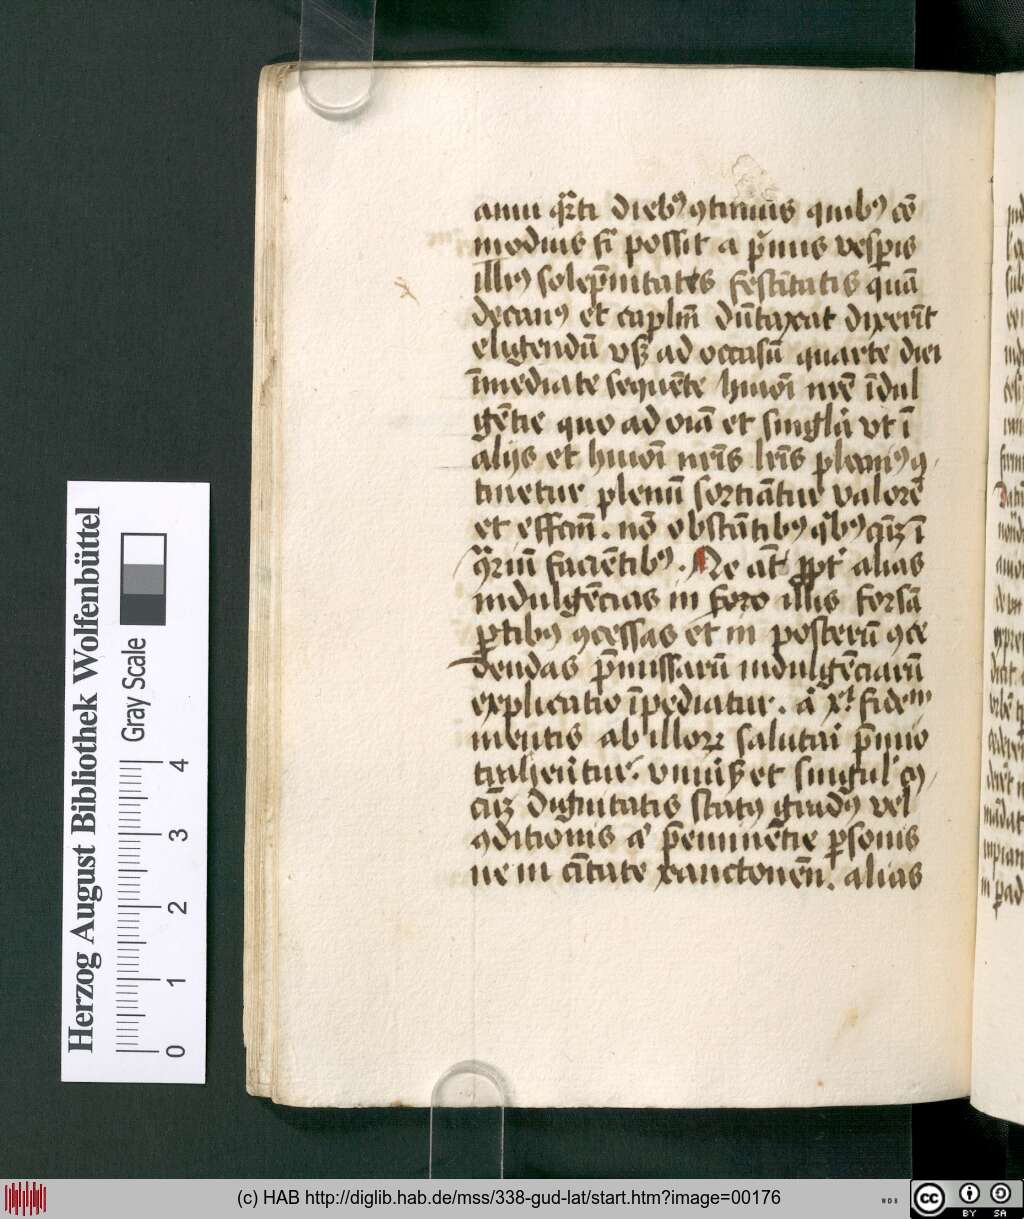 anni q̄rti diebꝰ ꝯtinuis quibꝰ cō
modius fi possit a p̄mis vespis
illiꝰ solēpnitates festītatis quā
decanꝰ et caplm̄ dūtaxat dixerīt
eligendū vsqꝫ ad occasū quarte diei
īmediate sequēte huiōi nr̄e īdul
gētie quo ad oīa et singl̄a vt ī
alijs et huiōi nr̄is lr̄is pleniꝰ ꝯ
tinetur plenū sortiātur valorē
et effcm̄. nō obstātibꝰ qͥbꝰcūqꝫ ī
ꝯriū faciētibꝰ. Ne āt ꝓpt alias
indulgēcias in foro illis forsā
ꝑtibꝰ ꝯcessas et in posterū ꝯce
dendas p̄missarū indulgēciarū
explicatio īpediatur. a xͥ fidem
mentis ab illoꝝ salutari p̄mio
traherētur. vniuī et singulꝭ cꝰ
cūqꝫ dignitatis statꝰ gradꝰ vel
ꝯditionis a p̄eminētie ꝑsonis
ne in cītate xanctonēn̄. alias
Herzog August Bibliothek Wolfenbüttel
Gray Scale
0 1 2 3 4
(c) HAB http://diglib.hab.de/mss/338-gud-lat/start.htm?image=00176
WDB
cc BY SA